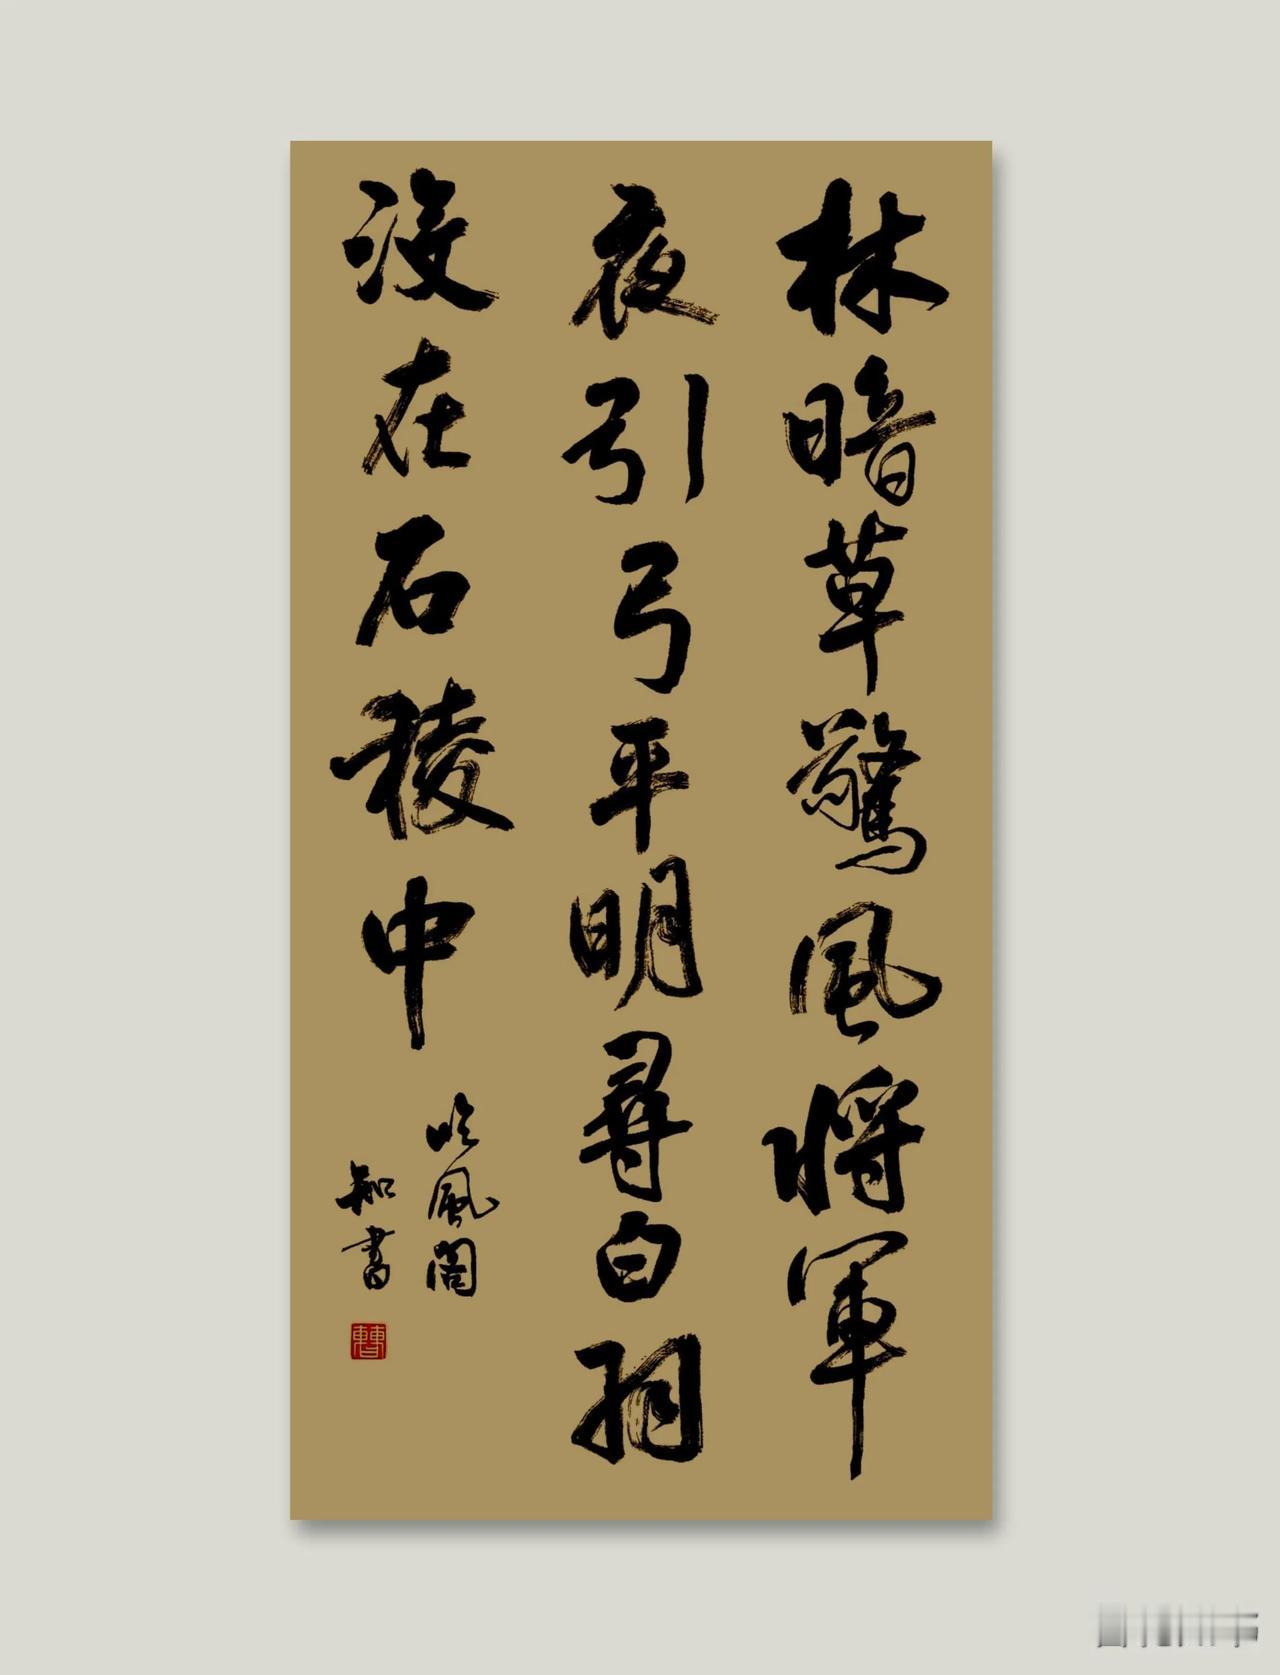 林暗草驚風將軍
夜引弓平明尋白羽
沒在石稜中
吟風閣
知書
曹